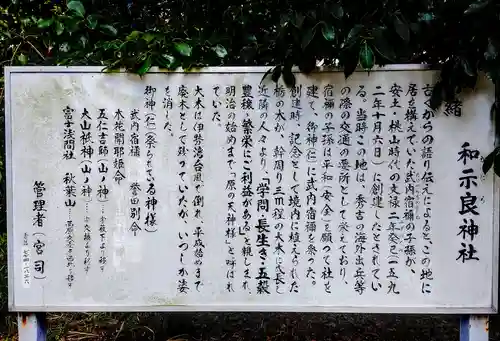 和示良神社
古くからの語り伝えによると、この地に
居を構えていた武内宿禰の子孫が、
安土・桃山時代の文禄二年癸巳(一五九
二年十月六日)に創建したとされてい
る。当時この地は、秀吉の海外出兵等
の際の交通の要所として栄えており、
宿禰の子孫は平和(安全)を願って社を
建て、御神(仁)に武内宿禰を祭った。
創建時、記念として境内に植えられた
栃の大木が、幹周り三m程の大木に成長し
近隣の人々より、「学問・長生き・五穀
豊穣・繁栄にご利益がある」と親しまれ
明治の始めまで「原の天神様」と呼ばれ
ていた。
大木は伊勢湾台風で倒れ、平成始めまで
廃木として残っていたが、いつしか姿
を消した。
御神(仁)(祭られている神様)
武内宿禰 誉田別命
木花開耶姫命
五仁吉師(山ノ神)
大山祇神(山ノ神)
富士浅間社 秋葉山
管理者(宮司)